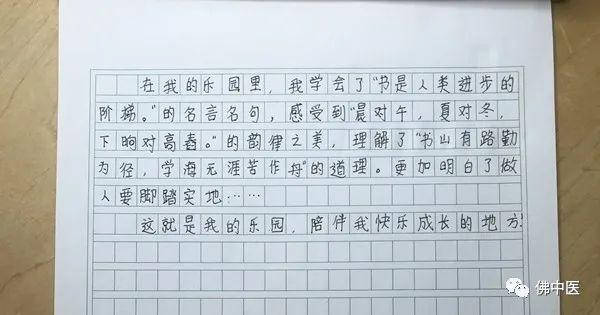 在我的乐园里，我学会了“书是人类进步的
阶梯。”的名言名句，感受到“晨对午，夏对冬，
下晌对高舂。”的韵律之美，理解了“书山有路勤
为径，学海无涯苦作舟”的道理。更加明白了做
人要脚踏实地……
这就是我的乐园，陪伴我快乐成长的地方！
佛中医